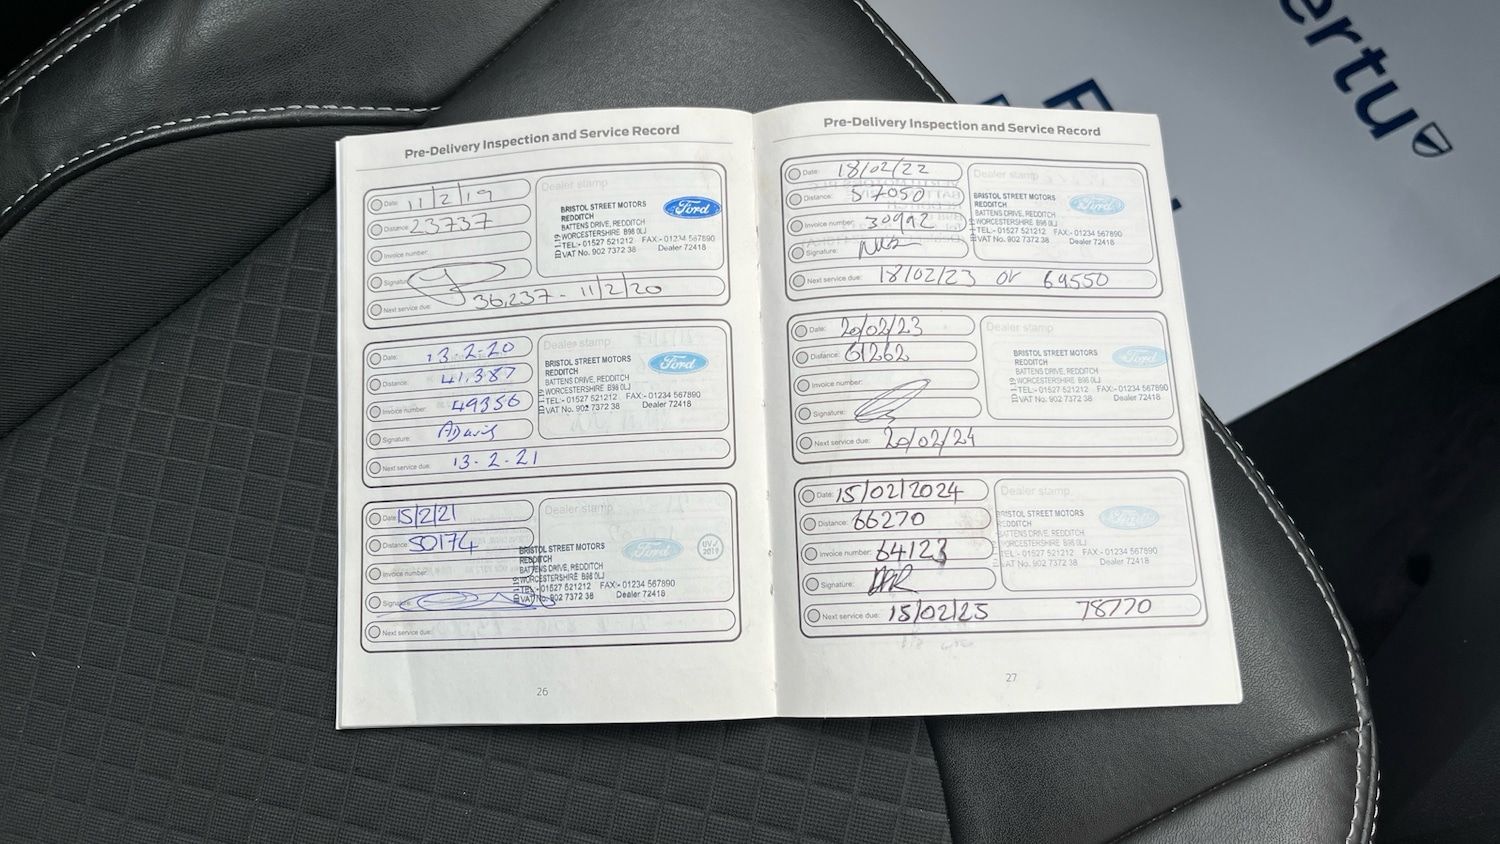 ertu
Pre-Delivery Inspection and Service Record
Date: 11/2/19
Distance: 23737
Invoice number:
Signature:
Next service due: 36,237 - 11/2/20
Dealer stamp
BRISTOL STREET MOTORS
REDDITCH
BATTENS DRIVE, REDDITCH
WORCESTERSHIRE B98 0LJ
TEL:- 01527 521212 FAX:- 01234 567890
VAT No. 902 7372 38 Dealer 72418
ID 1.19
Ford
Date: 13.2.20
Distance: 41,387
Invoice number: 49356
Signature: ADavis
Next service due: 13.2.21
Dealer stamp
BRISTOL STREET MOTORS
REDDITCH
BATTENS DRIVE, REDDITCH
WORCESTERSHIRE B98 0LJ
TEL:- 01527 521212 FAX:- 01234 567890
VAT No. 902 7372 38 Dealer 72418
ID 1.19
Ford
Date: 15/2/21
Distance: 50174
Invoice number:
Signature:
Next service due:
Dealer stamp
BRISTOL STREET MOTORS
REDDITCH
BATTENS DRIVE, REDDITCH
WORCESTERSHIRE B98 0LJ
TEL:- 01527 521212 FAX:- 01234 567890
VAT No. 902 7372 38 Dealer 72418
Ford
26
Pre-Delivery Inspection and Service Record
Date: 18/02/22
Distance: 57050
Invoice number: 30992
Signature:
Next service due: 18/02/23 or 69550
Dealer stamp
BRISTOL STREET MOTORS
REDDITCH
BATTENS DRIVE, REDDITCH
WORCESTERSHIRE B98 0LJ
TEL:- 01527 521212 FAX:- 01234 567890
VAT No. 902 7372 38 Dealer 72418
ID 1.19
Ford
Date: 20/02/23
Distance: 61262
Invoice number:
Signature:
Next service due: 20/02/24
Dealer stamp
BRISTOL STREET MOTORS
REDDITCH
BATTENS DRIVE, REDDITCH
WORCESTERSHIRE B98 0LJ
TEL:- 01527 521212 FAX:- 01234 567890
VAT No. 902 7372 38 Dealer 72418
ID 1.19
Ford
Date: 15/02/2024
Distance: 66270
Invoice number: 64123
Signature:
Next service due: 15/02/25 78770
Dealer stamp
BRISTOL STREET MOTORS
REDDITCH
BATTENS DRIVE, REDDITCH
WORCESTERSHIRE B98 0LJ
TEL:- 01527 521212 FAX:- 01234 567890
VAT No. 902 7372 38 Dealer 72418
Ford
27